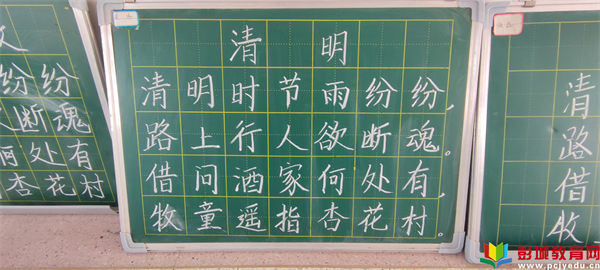 纷纷
断魂
何处有
杏花村
清明
清明时节雨纷纷,
路上行人欲断魂。
借问酒家何处有,
牧童遥指杏花村。
清
路
借
牧
彭城教育网
www.pcjyedu.cn